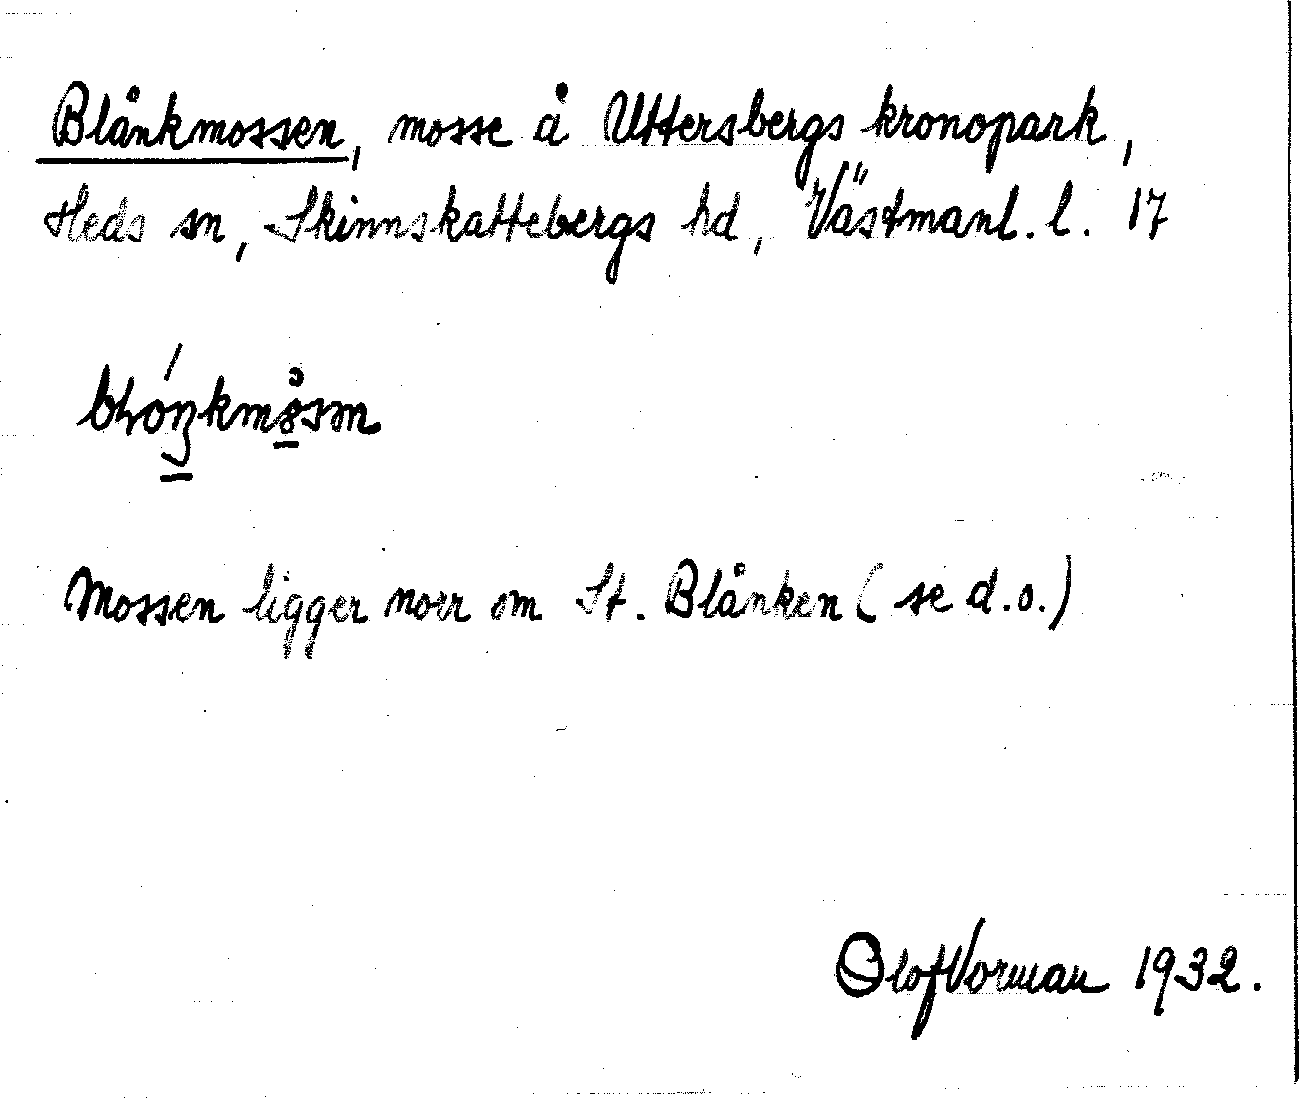 Blånkmossen, mosse å Uttersbergs kronopark,
Heds sn, Skinnskattebergs hd, Västmanl. l. 17
Mossen ligger norr om St. Blånken (se d.o.)
Olof Vorman 1932.